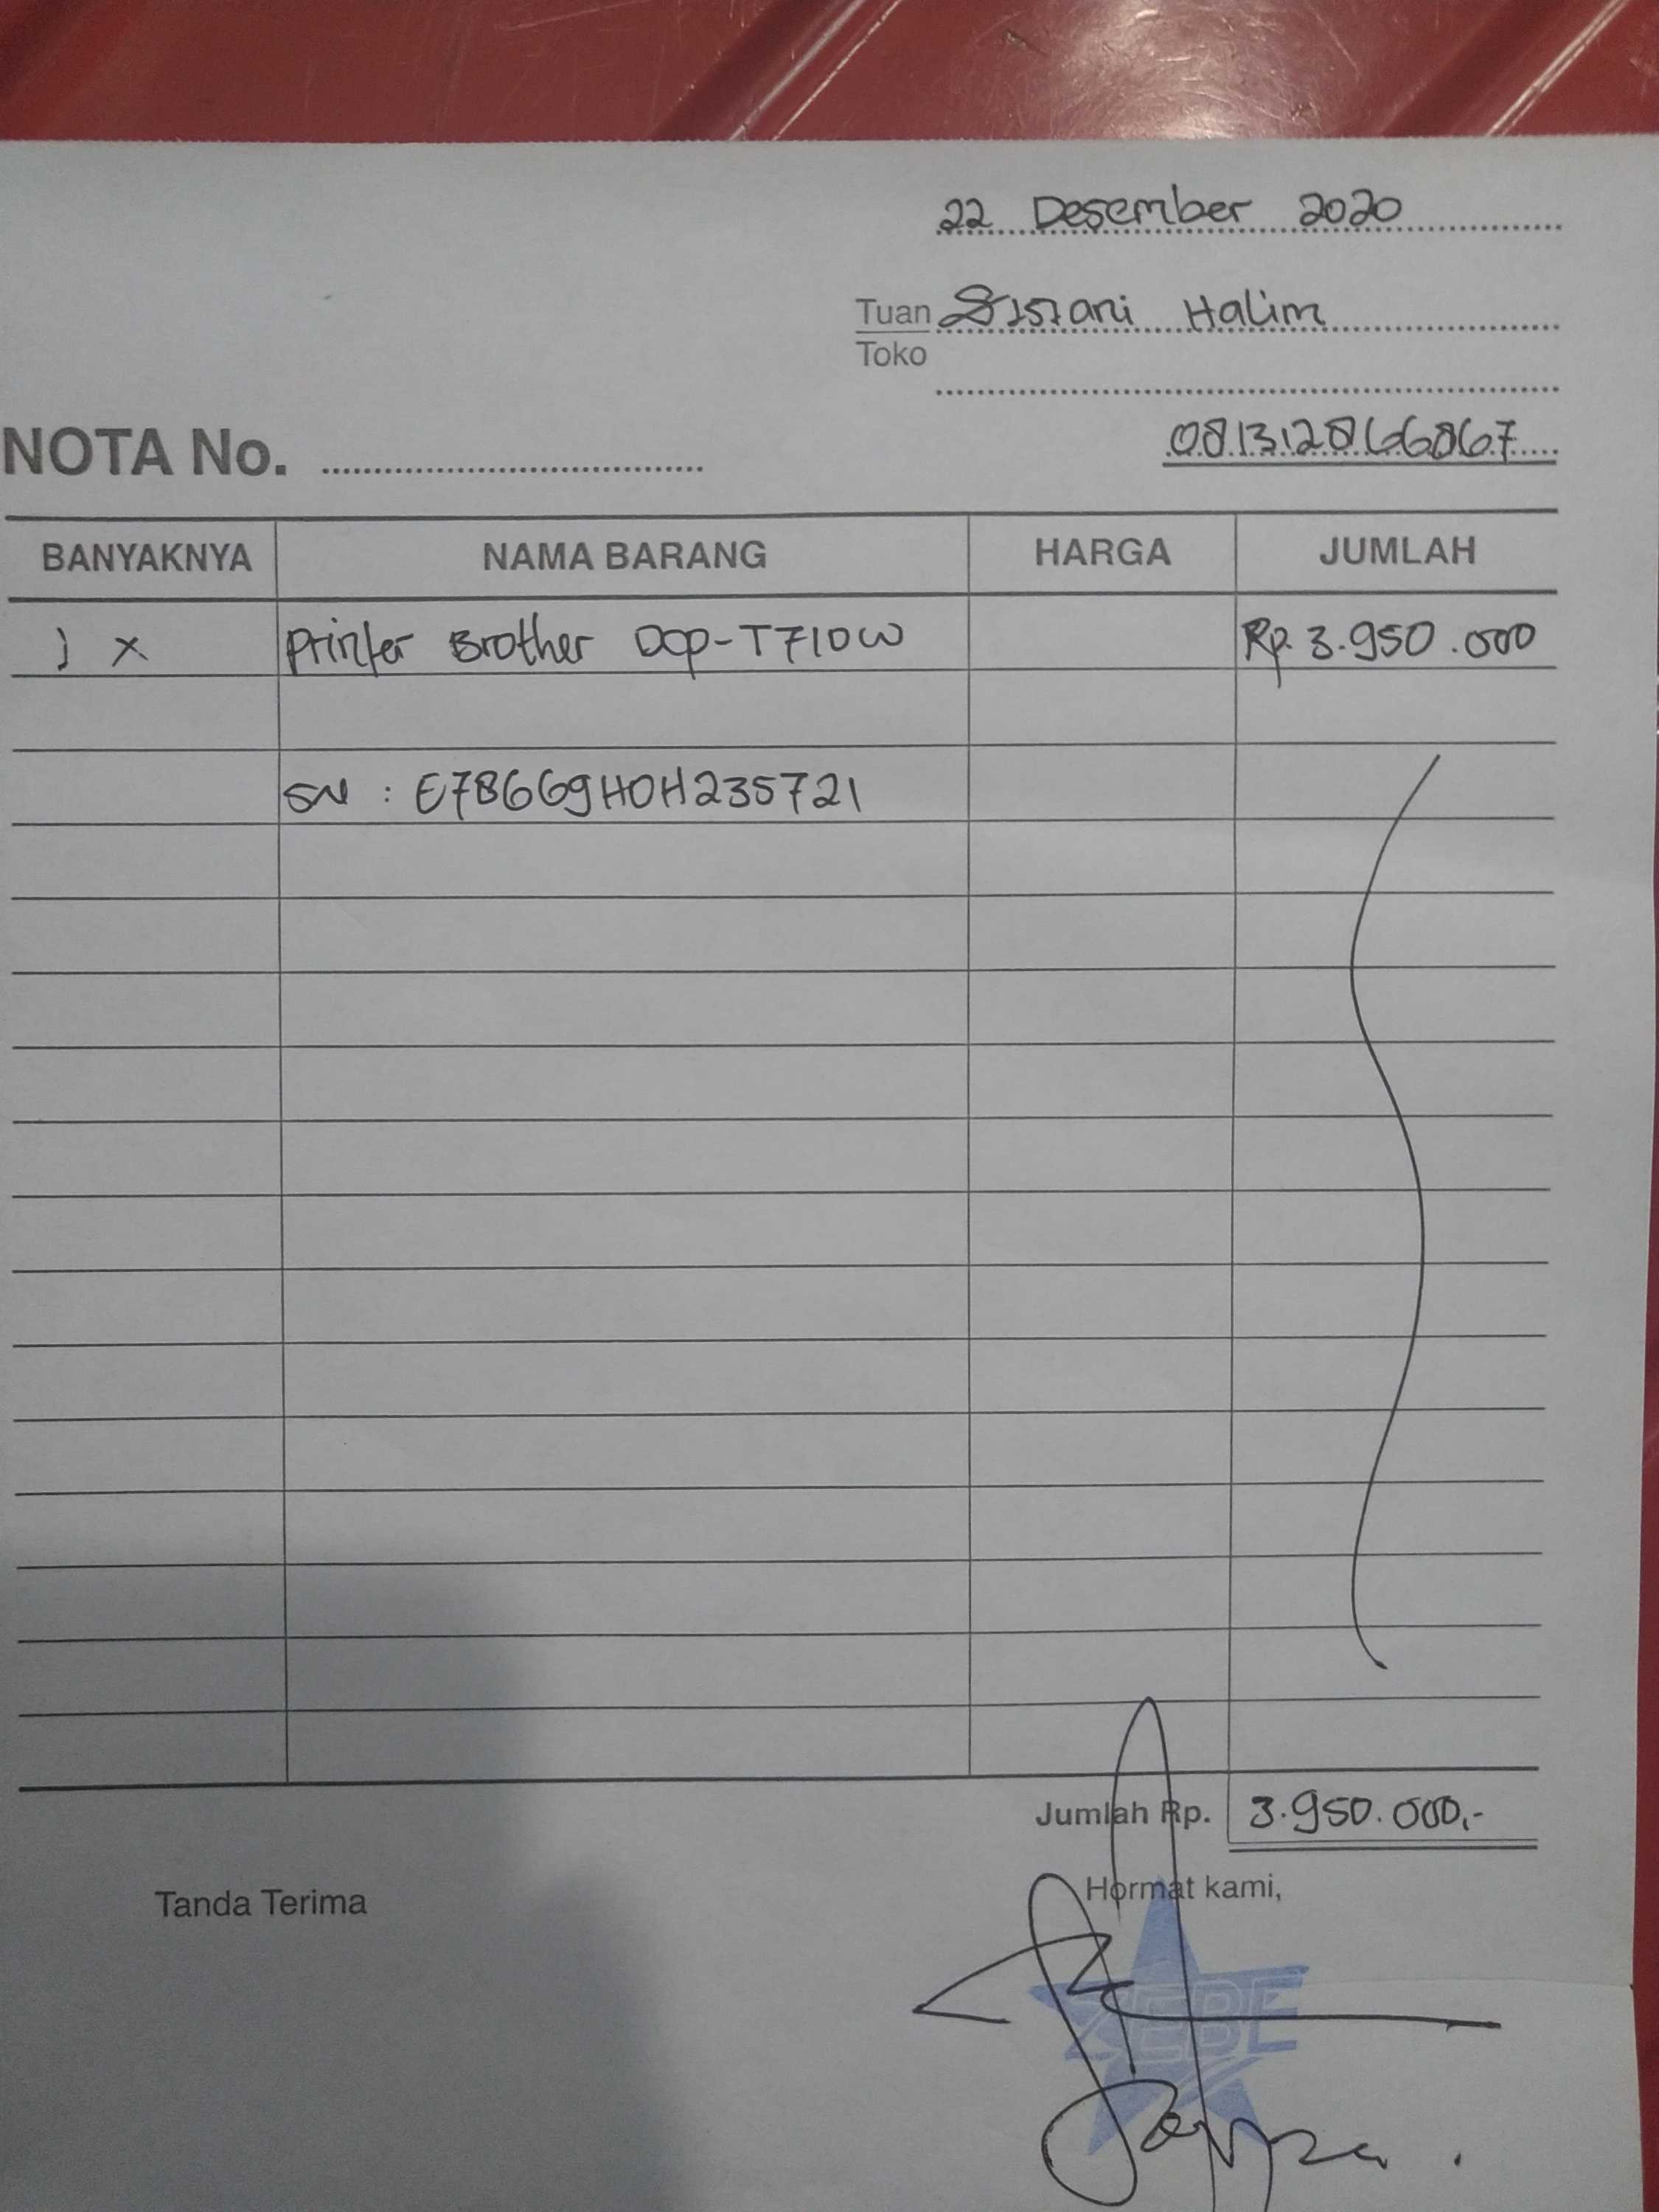 22 Desember 2020
Tuan Sistani Halim
Toko
081312866867
NOTA No.
BANYAKNYA NAMA BARANG HARGA JUMLAH
1 x Printer Brother Dcp-T710W Rp. 3.950.000
SN : E78669H0H235721
Jumlah Rp. 3.950.000,-
Tanda Terima Hormat kami,